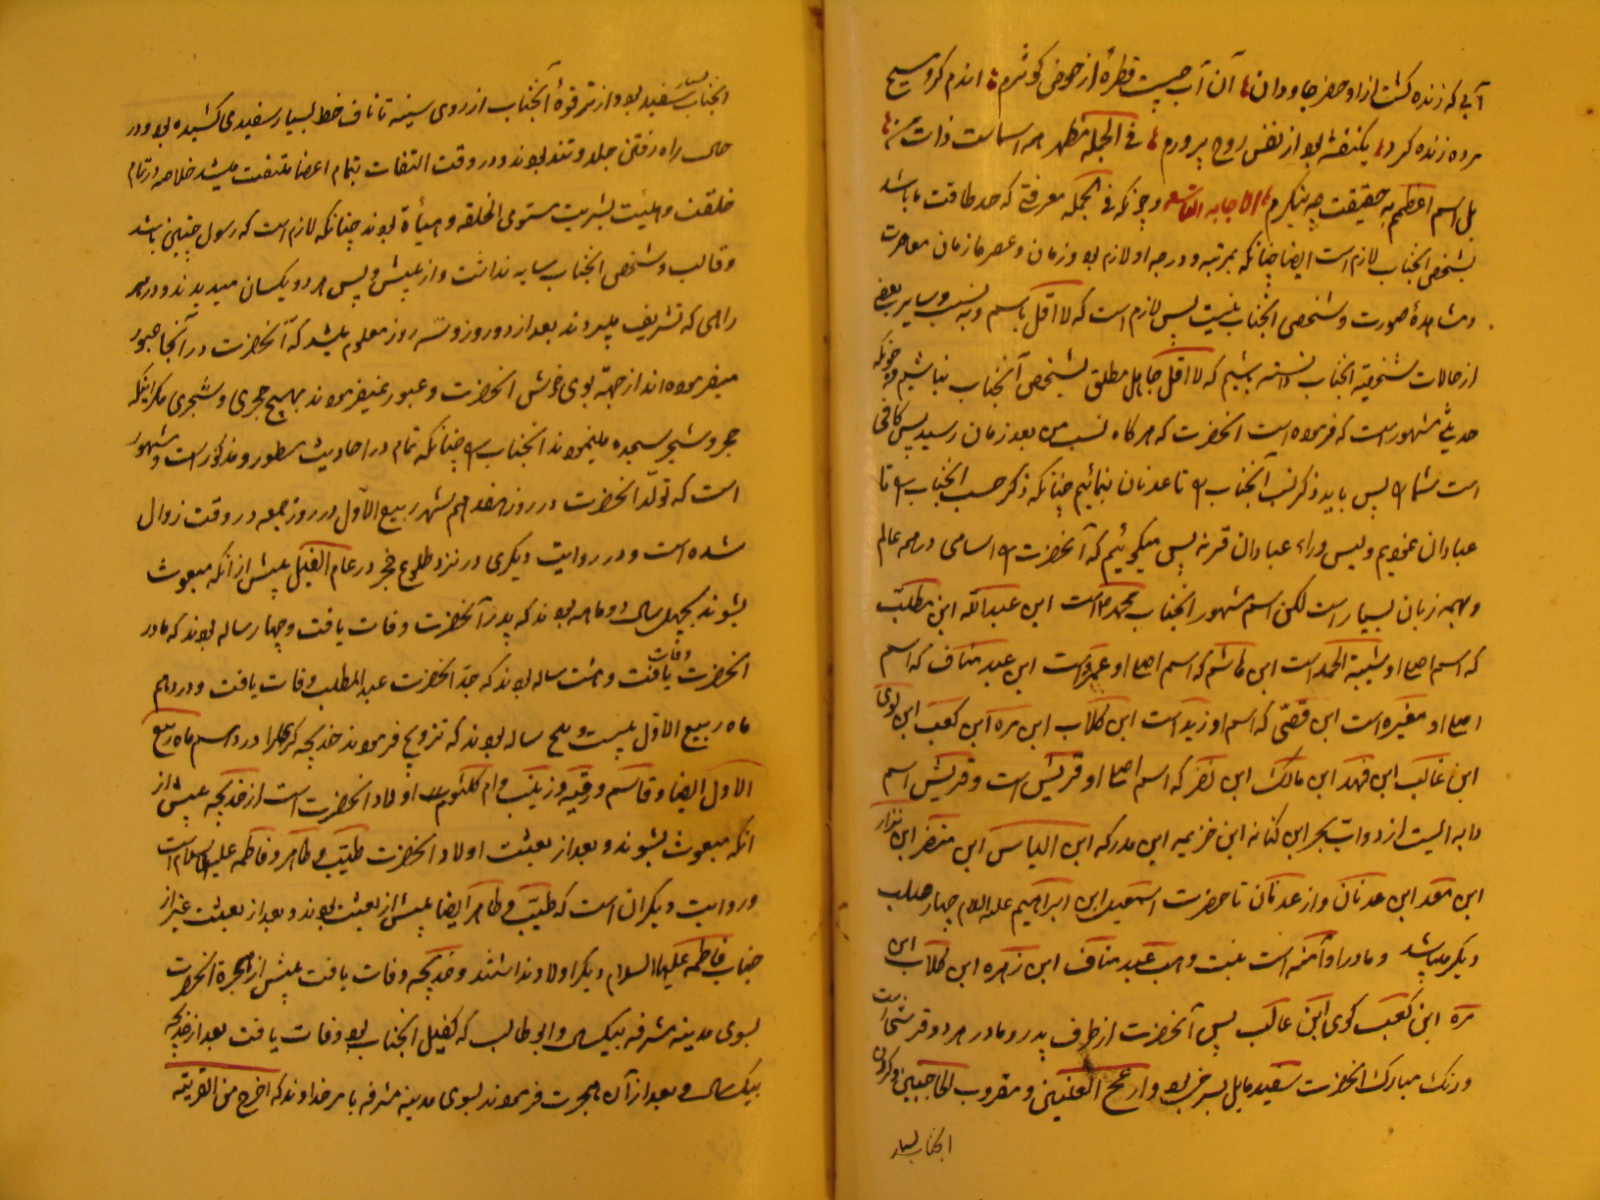 آبی که زنده گشت از او خضر جاودان آن آب چیست قطرهٔ از حوض کوثرم اندم کز و مسیح
مرده زنده کرد یکنفثه بود از نفس روح پرورم فی الجمله مظهر همه اسماست ذات من
بل اسم اعظمم به حقیقت چه بنگرم الاجابه التاسع و چونکه فی الجمله معرفتی که حد طاقت ما باشد
بشخص انجناب لازم است ایضا چنانکه بمرتبه و درجه او لازم بود و زمان و عصر ما زمان معاصرت
و مشاهدهٔ صورت و شخص انجناب نیست پس لازم است که لااقل باسم و به نسب و سایر بعضی
از حالات شخصیّه انجناب دانسته باشیم که لااقل جاهل مطلق بشخص آنجناب نباشیم و چونکه
حدیثی مشهور است که فرموده است انحضرت که هر گاه نسب من بعدنان رسید پس کافی
است شما را پس باید ذکر نسب آنجناب را تا عدنان نمائیم چنانکه ذکر حسب انجناب را تا
عبادان نمودیم و لیس وراء عبادان قریه پس میگوئیم که آنحضرت را اسامی در هر عالم
و بهمه زبان بسیار است لکن اسم مشهور انجناب محمد ص است ابن عبدالله ابن مطلّب
که اسم اصلی او شیبة الحمد است ابن هاشم که اسم اصلی او عمرو است ابن عبد مناف که اسم
اصلی او مغیره است ابن قصّی که اسم او زید است ابن کلاب ابن مره ابن کعب ابن لوی
ابن غالب ابن فهد ابن مالک ابن نضر که اسم اصلی او قریش است و قریش اسم
دابه الیست از دوابّ بحر ابن کنانه ابن خزیمه ابن مدرکه ابن الیاس ابن مضر ابن نزار
ابن معد ابن عدنان و از عدنان تا حضرت اسمعیل ابن ابراهیم علیه السلام چهار صلب
دیگر میباشد و مادر او آمنه است بنت وهب عبد مناف ابن زهره ابن کلاب ابن
مره ابن کعب لوی ابن غالب پس آنحضرت از طرف پدر و مادر هر دو قرشی است
و رنک مبارک انحضرت سفید مایل بسرخی بود و ادعج العینین و مقرون الحاجبین و گردن
انجناب بسیار
انجناب بسیار سفید بود و از ترقوهٔ آنجناب از روی سینه تا ناف خط بسیار سفیدی کشیده بود و در
حال راه رفتن جلد و تند بودند و در وقت التفات بتمام اعضا ملتفت میشد خلاصه در تمام
خلقت و هیئت بشریت مستوی الخلقه و هیأة بودند چنانکه لازم است که رسول چنین باشد
و قالب و شخص انجناب سایه نداشت و از پیش و پس هر دو یکسان میدیدند و در هر
راهی که تشریف میبردند بعد از دو روز و سه روز معلوم میشد که آنحضرت در آنجا عبور
میفرموده اند از جهة بوی خوش انحضرت و عبور نمیفرمودند بهیچ حجری و شجری مگر اینکه
حجر و شجر سجده مینمودند انجناب را چنانکه تمام در احادیث مسطور و مذکور است و مشهور
است که تولّد انحضرت در روز هفدهم شهر ربیع الاول در روز جمعه در وقت زوال
شده است و در روایت دیگری در نزد طلوع فجر در عام الفیل پیش از آنکه مبعوث
بشوند بچهل سال و دو ماهه بودند که پدر آنحضرت وفات یافت و چهار ساله بودند که مادر
انحضرت وفات یافت و هشت ساله بودند که جد انحضرت عبد المطلب وفات یافت و در دهم
ماه ربیع الاول بیست و پنج ساله بودند که تزویج فرمودند خدیجه کبری را در دهم ماه ربیع
الاول ایضا و قاسم و رقیه و زینب و ام کلثوم اولاد انحضرت است از خدیجه پیش از
آنکه مبعوث بشوند و بعد از بعثت اولاد انحضرت طیّب و طاهر و فاطمه علیها السلام است
و روایت دیگر ان است که طیّب و طاهر ایضا پیش از بعثت بودند و بعد از بعثت غیر از
جناب فاطمه علیها السلام دیگر اولاد نداشتند و خدیجه وفات یافت پیش از هجرة انحضرت
بسوی مدینه مشرفه بیکسال و ابو طالب که کفیل انجناب بود وفات یافت بعد از خدیجه
بیکسال و بعد از آن هجرت فرمودند بسوی مدینه مشرفه بامر خداوند که اخرج من القریة